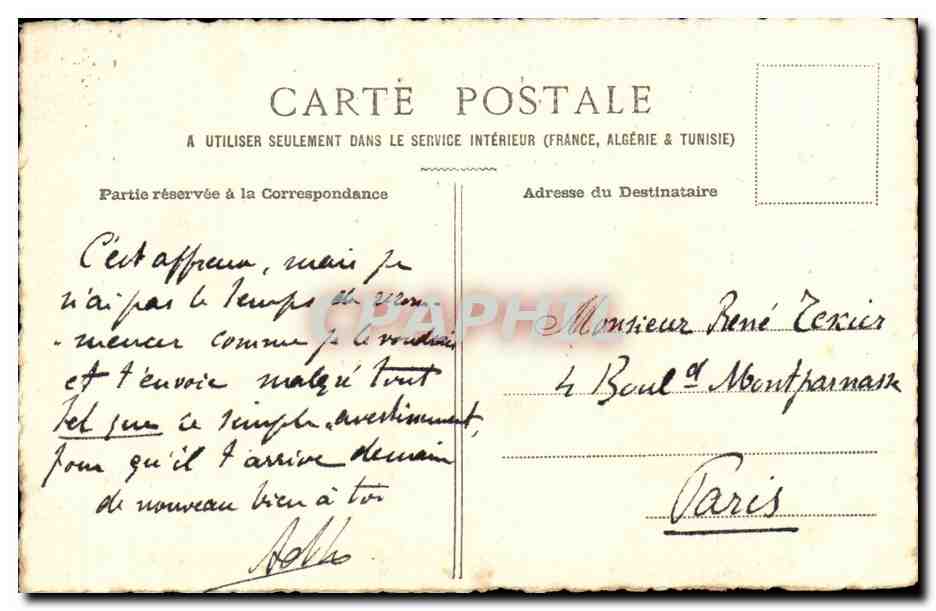 CARTE POSTALE
A UTILISER SEULEMENT DANS LE SERVICE INTÉRIEUR (FRANCE, ALGÉRIE & TUNISIE)
Partie réservée à la Correspondance
C'est affreux, mais je
n'ai pas le temps de recom-
-mencer comme je le voudrais
et t'envoie malgré tout
tel que ce simple avertissement,
pour qu'il t'arrive demain
de nouveau bien à toi
Adresse du Destinataire
Monsieur René Texier
4 Boul d Montparnasse
Paris
CPAPHIL